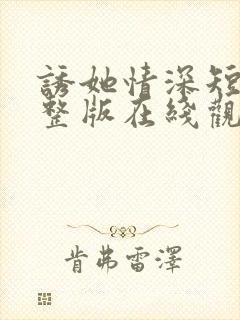 誘她情深短
整版在綫觀
肯弗雷澤